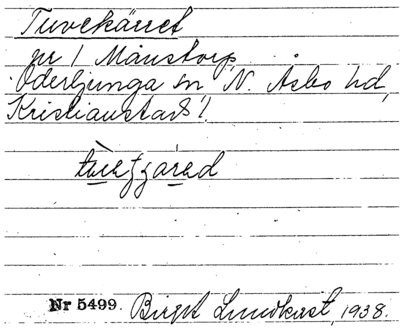 Tuvekärret
nr 1 Månstorp,
Oderljunga sn N. Åsbo hd,
Kristianstads l.
Nr 5499. Birgit Lundkvist, 1938.